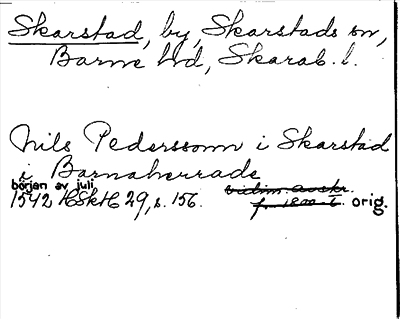 Skarstad, by, Skarstads sn,
Barne hd, Skarab. l.
Nils Pederssonn i Skarstad
i Barnaherrade
början av juli
1542 HSkH 29, s. 156. vidim. avskr.
fr. 1800-t. orig.